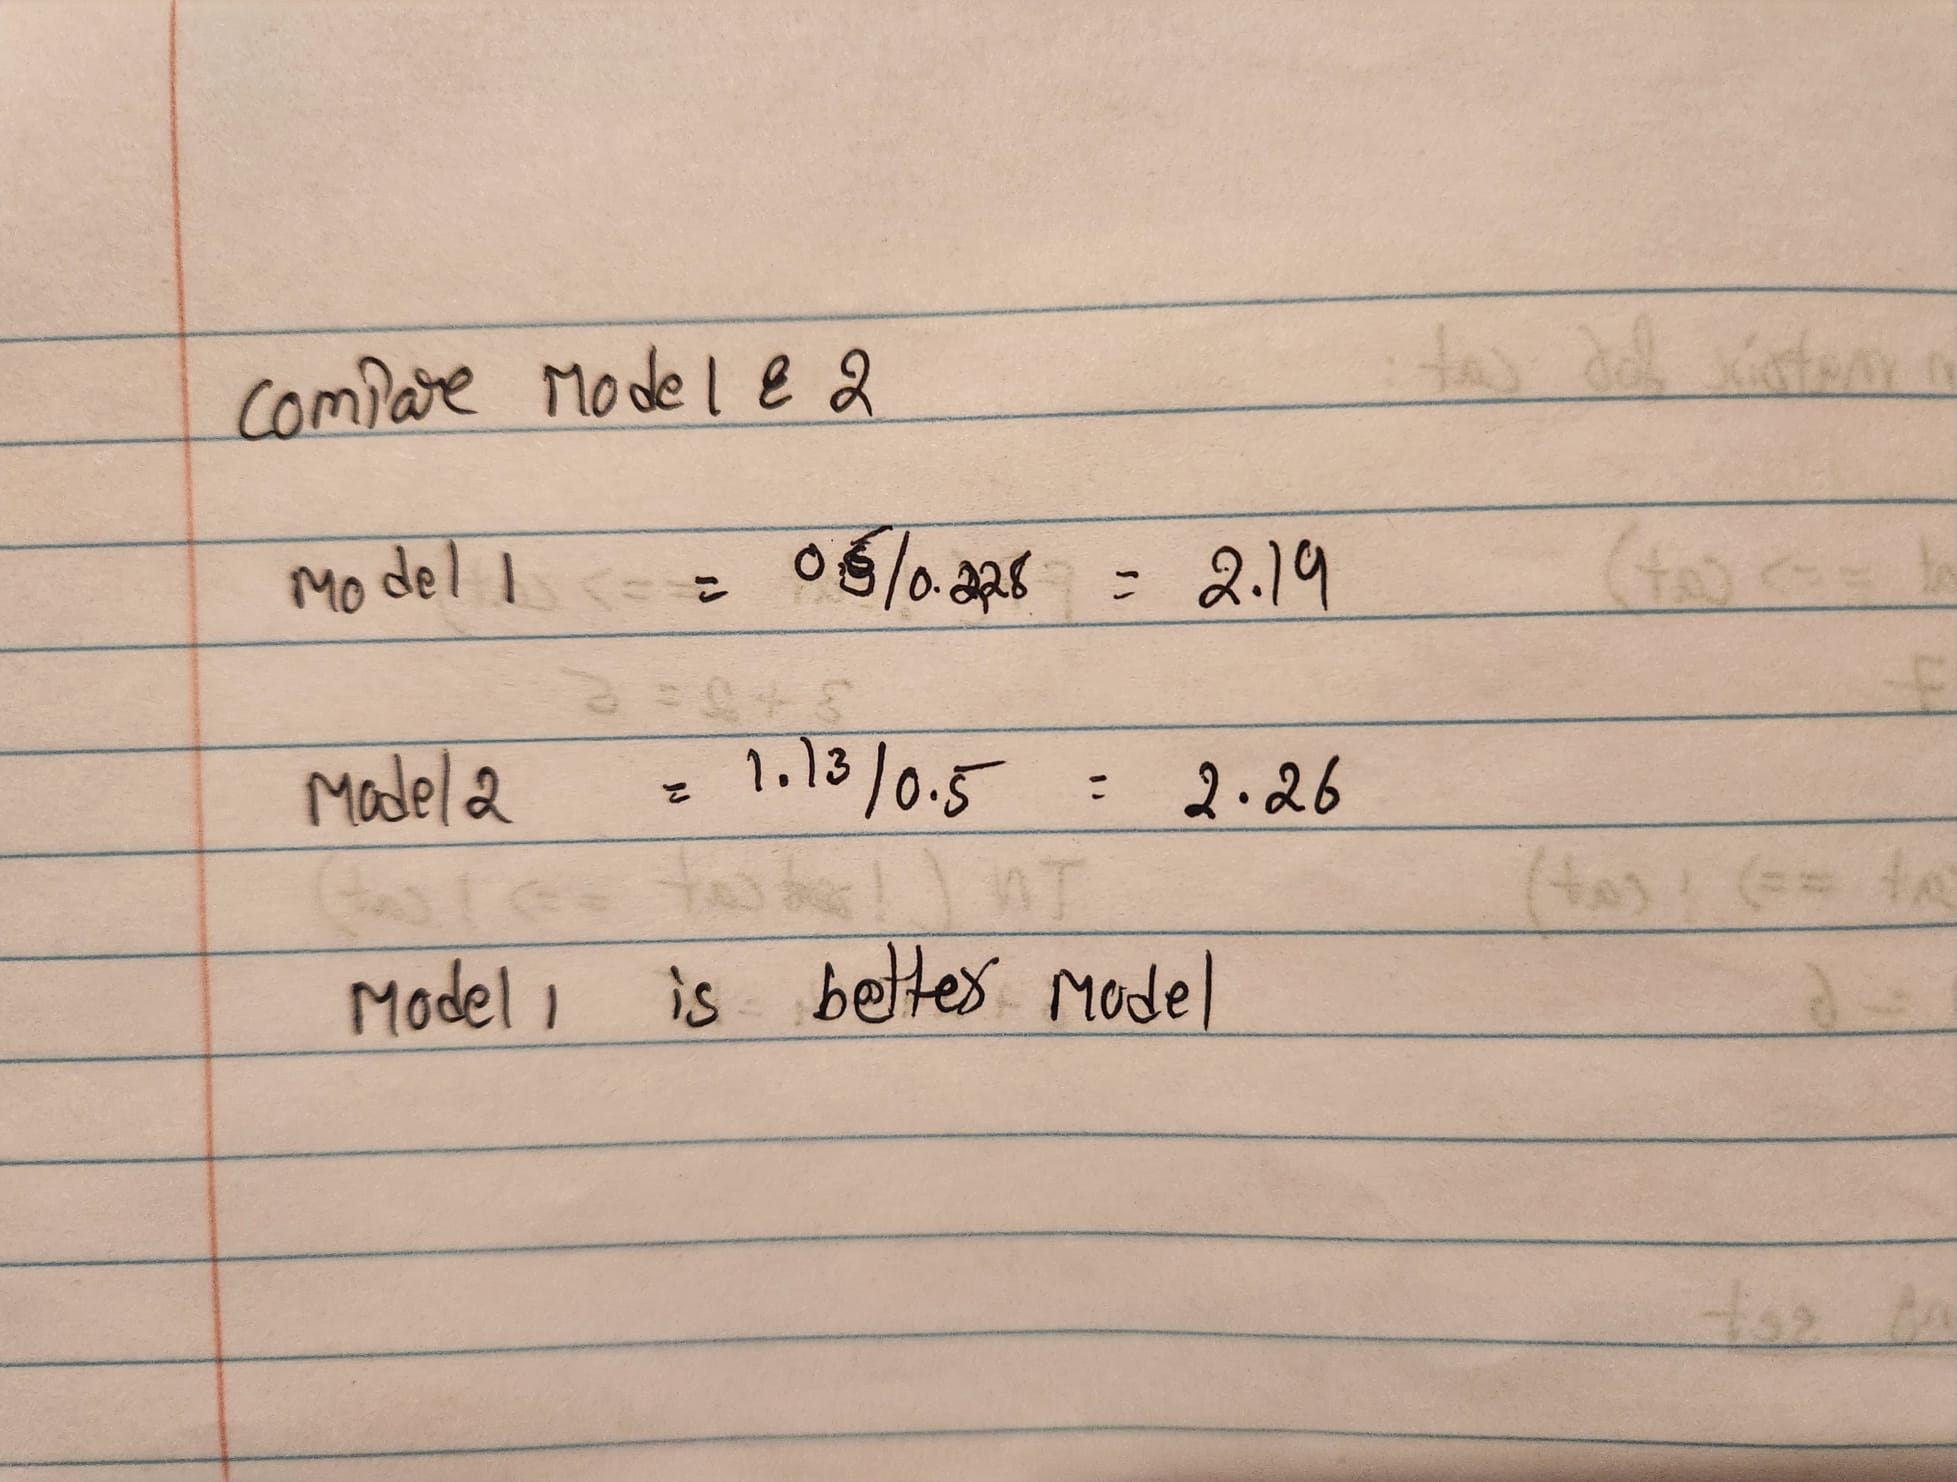 Compare Model & 2
Model 1 = 0.5/0.228 = 2.19
Model 2 = 1.13/0.5 = 2.26
Model 1 is better Model